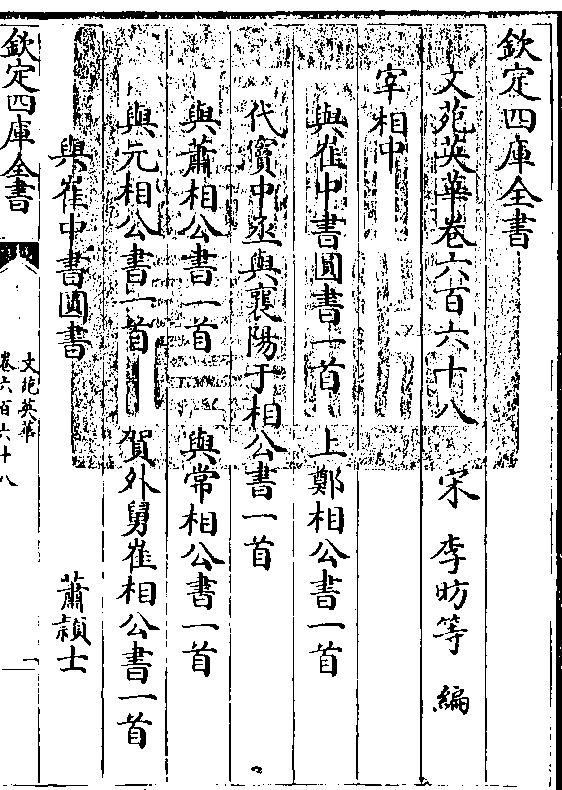 欽定四庫全書
文苑英華卷六百六十八　宋　李昉等　編
宰相中
與崔中書圓書一首　上鄭相公書一首
代竇中丞與襄陽于相公書一首
與蕭相公書一首　與常相公書一首
與元相公書一首　賀外舅崔相公書一首
與崔中書圓書　蕭頴士
欽定四庫全書
文苑英華
卷六百六十八
一